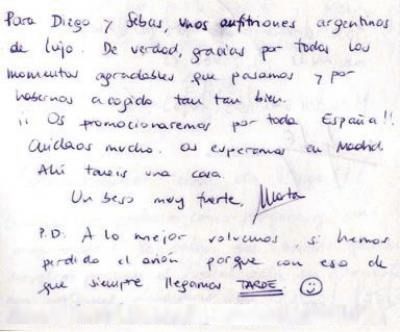 Para Diego y Sebas, unos anfitriones argentinos
de lujo. De verdad, gracias por todos los
momentos agradables que pasamos y por
habernos acogido tan tan bien.
¡¡ Os promocionaremos por toda España!!
Cuidaos mucho. Os esperamos en Madrid.
Ahí teneis una casa.
Un beso muy fuerte, Marta
P.D. A lo mejor volvemos si hemos
perdido el avión porque con eso de
que siempre llegamos TARDE. ☺